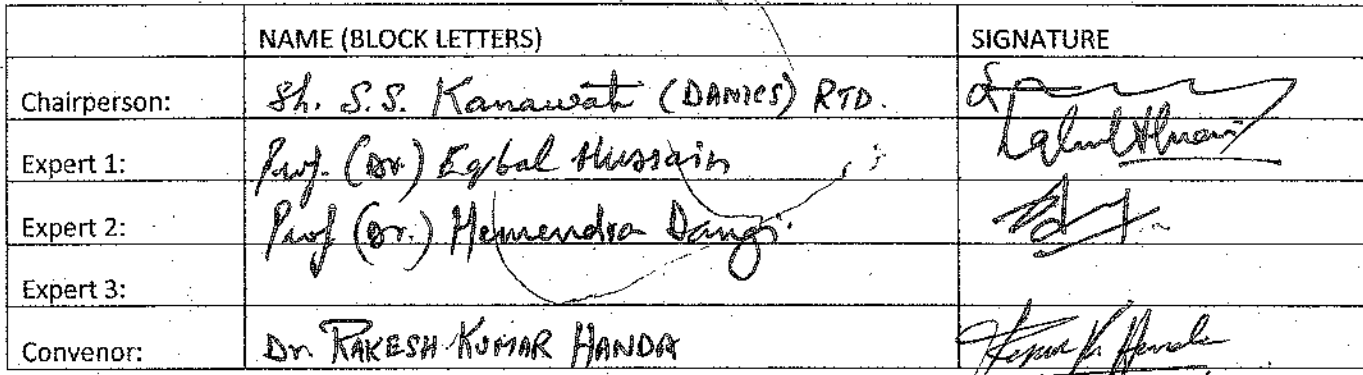 NAME (BLOCK LETTERS) SIGNATURE
Chairperson: Sh. S.S. Kanawat (DANICS) RTD.
Expert 1: Prof. (Dr.) Eqbal Hussain
Expert 2: Prof (Dr.) Hemendra Dangi.
Expert 3:
Convenor: Dr. RAKESH KUMAR HANDA